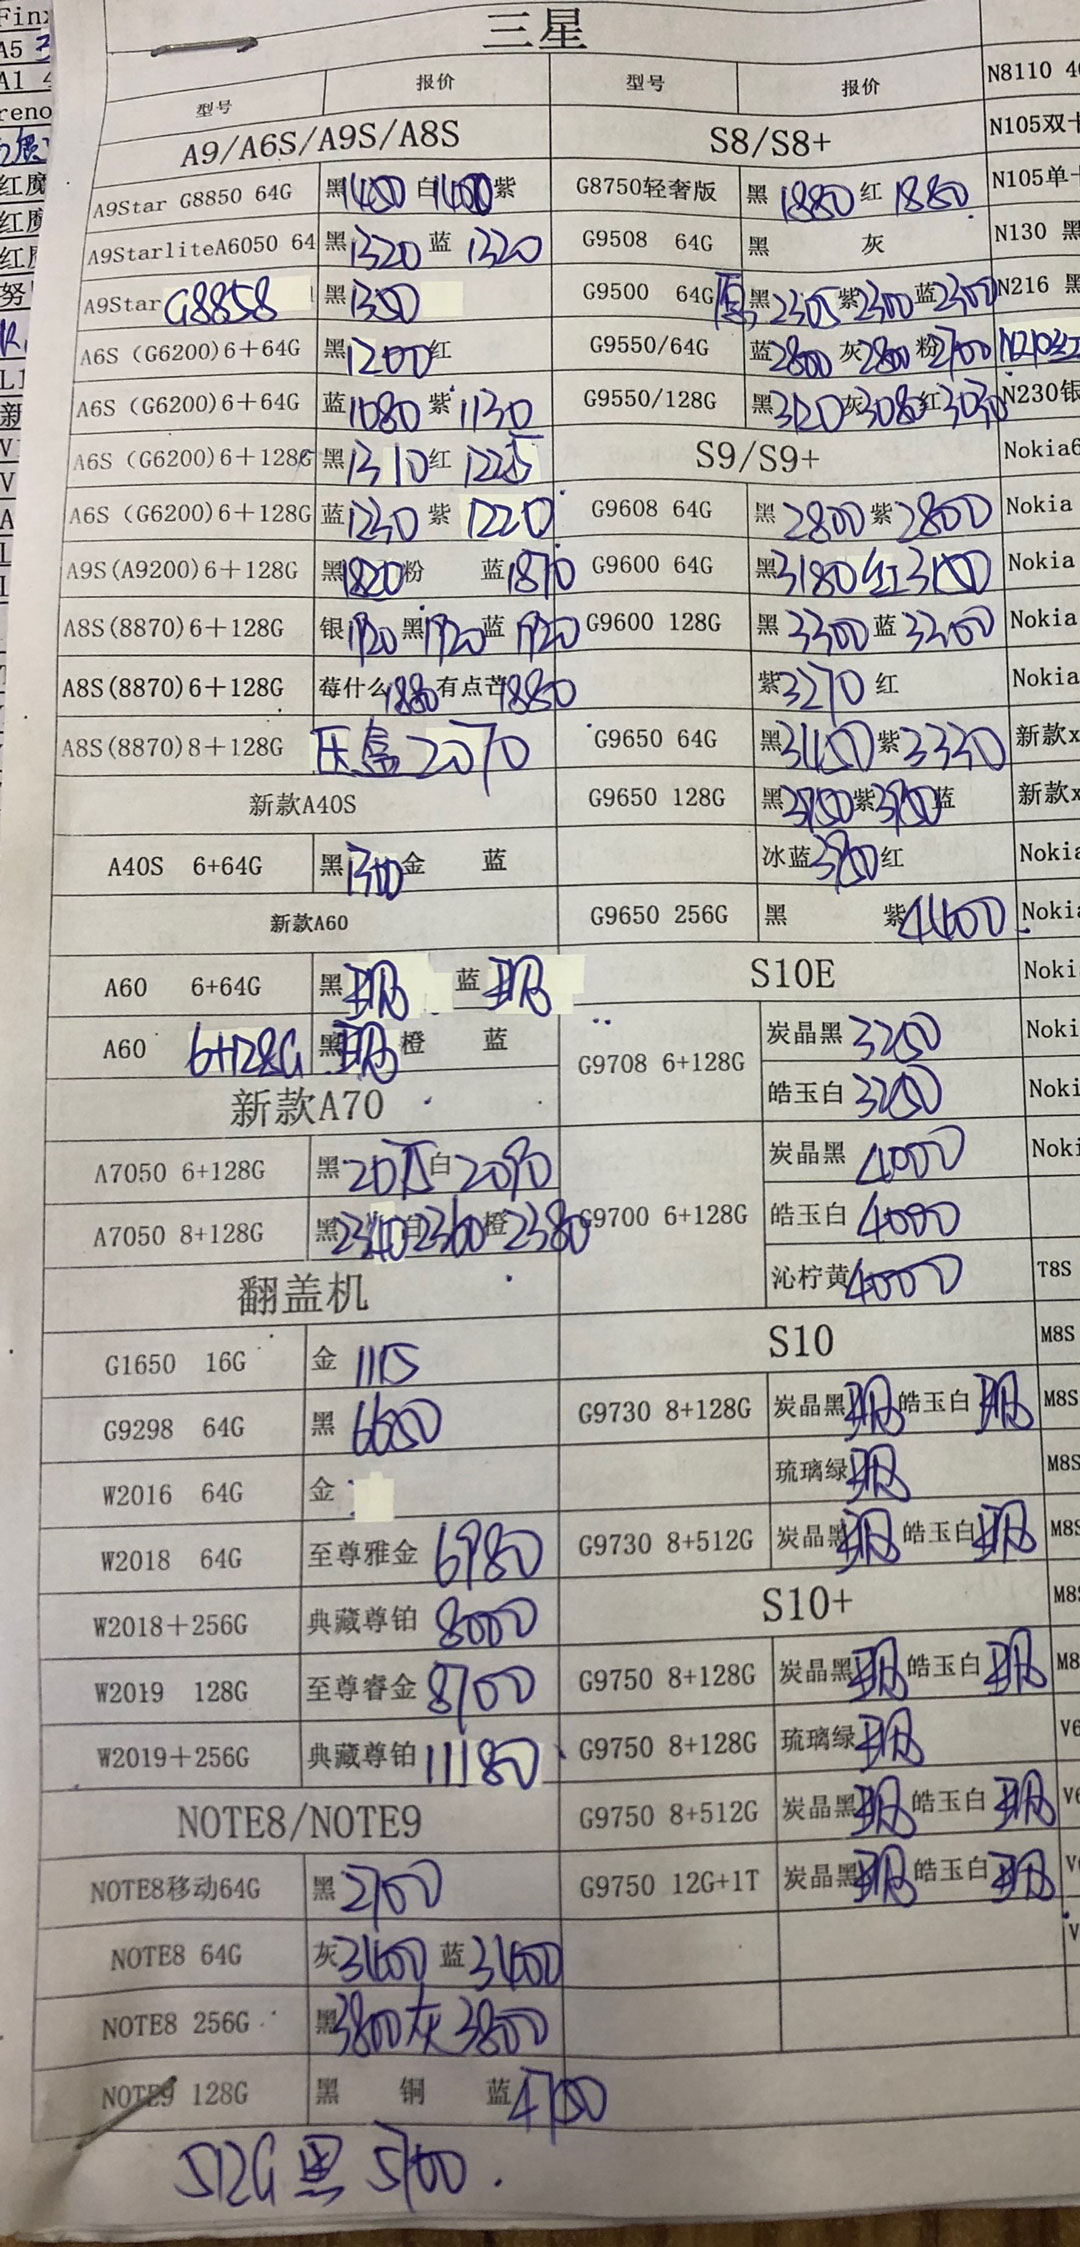 三星
型号 报价 型号 报价
A9/A6S/A9S/A8S
A9Star G8850 64G 黑1400 白1400紫
A9StarliteA6050 64 黑1320 蓝 1320
A9Star G8858 黑1350
A6S (G6200)6+64G 黑1200红
A6S (G6200)6+64G 蓝1080 紫1130
A6S (G6200)6+128G 黑1310红 1225
A6S (G6200)6+128G 蓝1230 紫 1220
A9S(A9200)6+128G 黑1820粉 蓝1870
A8S(8870)6+128G 银1920黑1920蓝1920
A8S(8870)6+128G 莓什么1880有点芒1880
A8S(8870)8+128G 2070
新款A40S
A40S 6+64G 黑1300金 蓝
新款A60
A60 6+64G 黑 蓝
A60 6+128G 黑 橙 蓝
新款A70
A7050 6+128G 黑2075白2090
A7050 8+128G 黑2340白2360橙2380
翻盖机
G1650 16G 金 1115
G9298 64G 黑 6650
W2016 64G 金
W2018 64G 至尊雅金 6980
W2018+256G 典藏尊铂 8000
W2019 128G 至尊睿金 8700
W2019+256G 典藏尊铂 11180
NOTE8/NOTE9
NOTE8移动64G 黑2700
NOTE8 64G 灰3400 蓝3400
NOTE8 256G 黑3800灰3800
NOTE9 128G 黑 铜 蓝4700
512G黑 5700.
S8/S8+
G8750轻奢版 黑 1880 红 1880
G9508 64G 黑 灰
G9500 64G 黑2305紫2300蓝2300
G9550/64G 蓝2800灰2800粉2700
G9550/128G 黑3120灰3080红3030
S9/S9+
G9608 64G 黑2800紫2800
G9600 64G 黑3180红3100
G9600 128G 黑3300蓝3300
紫3270红
G9650 64G 黑3400紫3330
G9650 128G 黑3750紫3750蓝
冰蓝3780红
G9650 256G 黑 紫4400
S10E
G9708 6+128G 炭晶黑 3250
皓玉白 3250
G9700 6+128G 炭晶黑 4000
皓玉白 4000
沁柠黄4000
S10
G9730 8+128G 炭晶黑 皓玉白
琉璃绿
G9730 8+512G 炭晶黑 皓玉白
S10+
G9750 8+128G 炭晶黑 皓玉白
G9750 8+128G 琉璃绿
G9750 8+512G 炭晶黑 皓玉白
G9750 12G+1T 炭晶黑 皓玉白
N8110
N105双
N105单
N130 黑
N216 黑
N210红
N230银
Nokia6
Nokia
Nokia
Nokia
Nokia
新款x
新款x
Nokia
Nokia
Noki
Noki
Noki
Nok
T8S
M8S
M8S
M8S
M8S
M8
M8
V6
V6
A5
A1
reno
红魔
红魔
红
努
L1
新